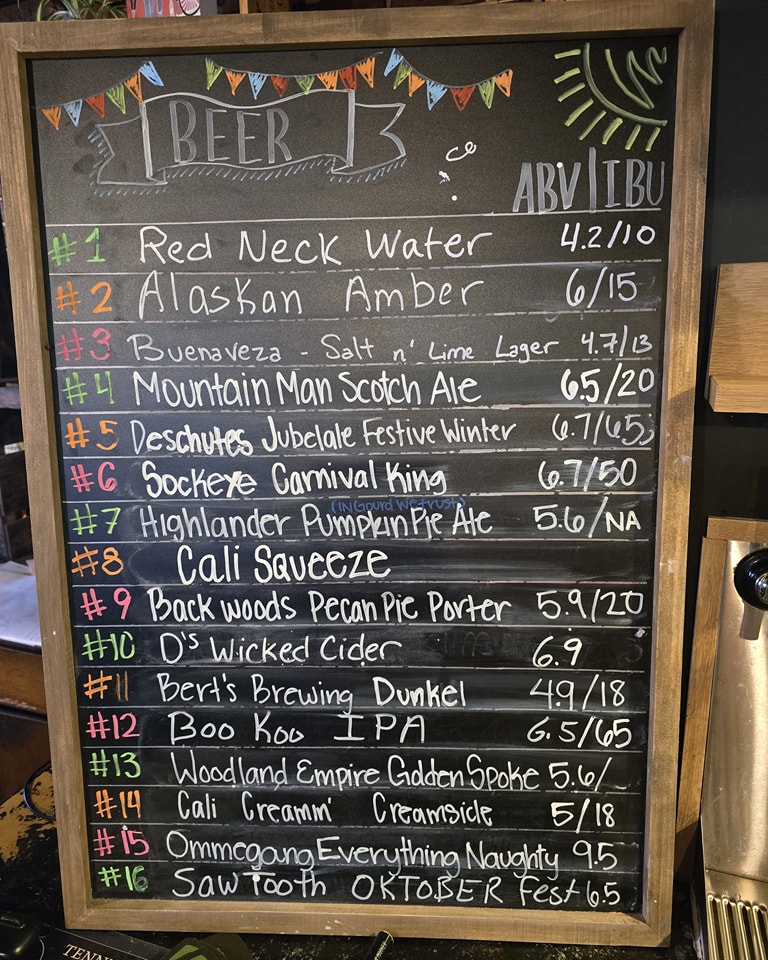 BEER
ABV|IBU
#1 Red Neck Water 4.2/10
#2 Alaskan Amber 6/15
#3 Buenaveza - Salt n' Lime Lager 4.7/13
#4 Mountain Man Scotch Ale 6.5/20
#5 Deschutes Jubelale Festive Winter 6.7/65
#6 Sockeye Carnival King 6.7/50
(IN Gourd We trust)
#7 Highlander Pumpkin Pie Ale 5.6/NA
#8 Cali Squeeze
#9 Backwoods Pecan Pie Porter 5.9/20
#10 D's Wicked Cider 6.9
#11 Bert's Brewing Dunkel 4.9/18
#12 Boo Koo IPA 6.5/65
#13 Woodland Empire Golden Spoke 5.6/
#14 Cali Creamin' Creamside 5/18
#15 Ommegang Everything Naughty 9.5
#16 Saw Tooth OKTOBER Fest 6.5